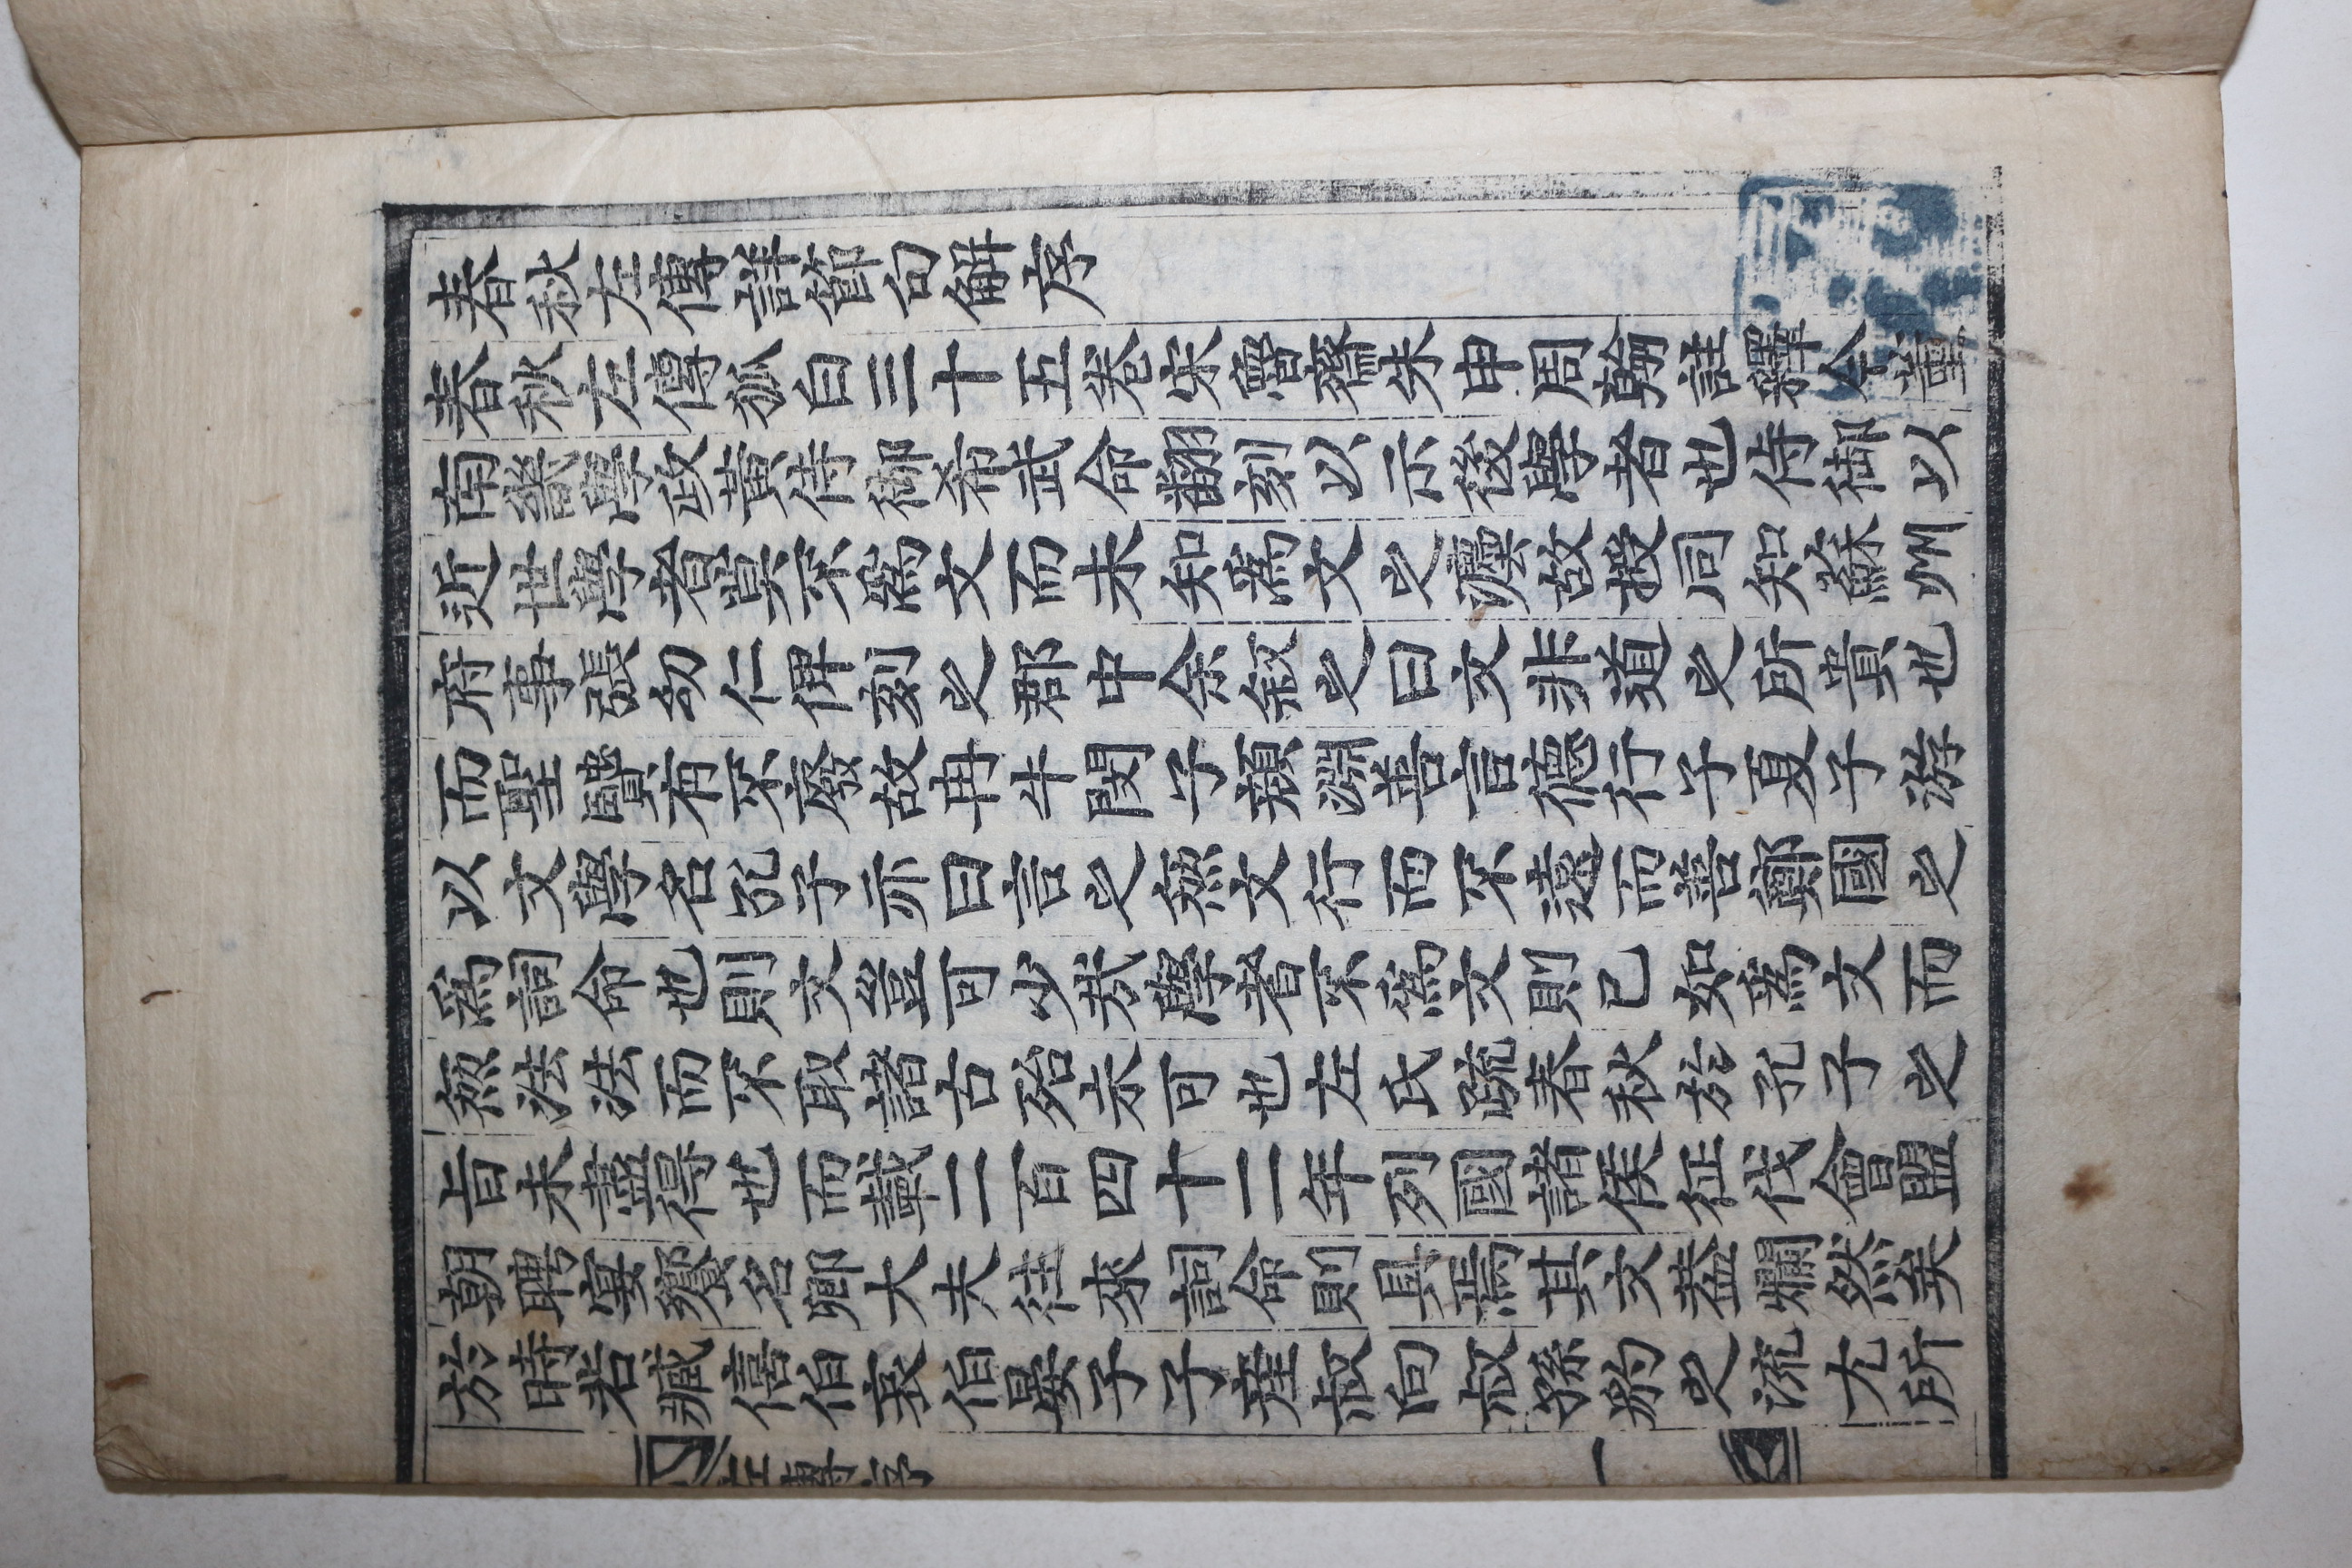 春秋左傳詳節句解序
春秋左傳凡自三十五卷宋魯齋朱申周翰註釋今董
南畿學政黃侍御希武命翻刻以示後學者也侍御以
近世學者莫不爲文而未知爲文之灋故授同知蘇州
府事張幼仁俾刻之郡中余叙之曰文非道之所貴也
而聖賢有不廢故冉牛閔子顏淵善言德行子夏子游
以文學名孔子亦曰言之無文行而不遠而善鄭國之
爲詞命也則文豈可少哉學者不爲文則已如爲文而
無法法而不取諸古殆未可也左氏疏春秋於孔子之
旨未盡得也而載二百四十二年列國諸侯征伐會盟
朝聘宴饗名卿大夫往來詞命則具焉其文蓋爛然矣
於時若臧僖伯哀伯晏子子產叔向叔孫豹之流尤所
左傳序 一